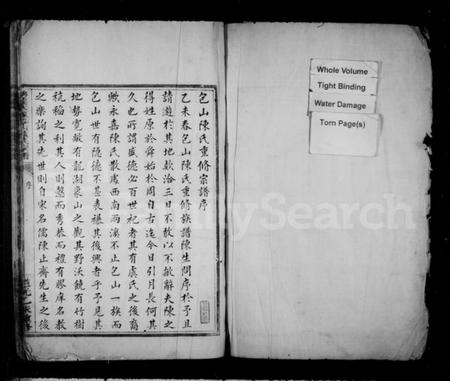 包山陳氏重修宗譜序
乙未春包山陳氏重修族譜陳生問序於予且
請遊於其地款洽三日不敢以不敏辭夫陳之
得姓原於舜始於周自古迄今日引月長何其
久也所謂盛德必百世祀者其有虞氏之後裔
歟永嘉陳氏散處西南兩溪不止包山一族而
包山世有隱德不甚表襮其後興者乎予見其
地勢寬敞有龍湖象山之觀其野沃饒有竹樹
秔稻之利其人則愨而秀恭而禮有膠庠名教
之樂詢其先世則自宋名儒陳止齋先生之後
序
Whole Volume
Tight Binding
Water Damage
Torn Page(s)
FamilySearch